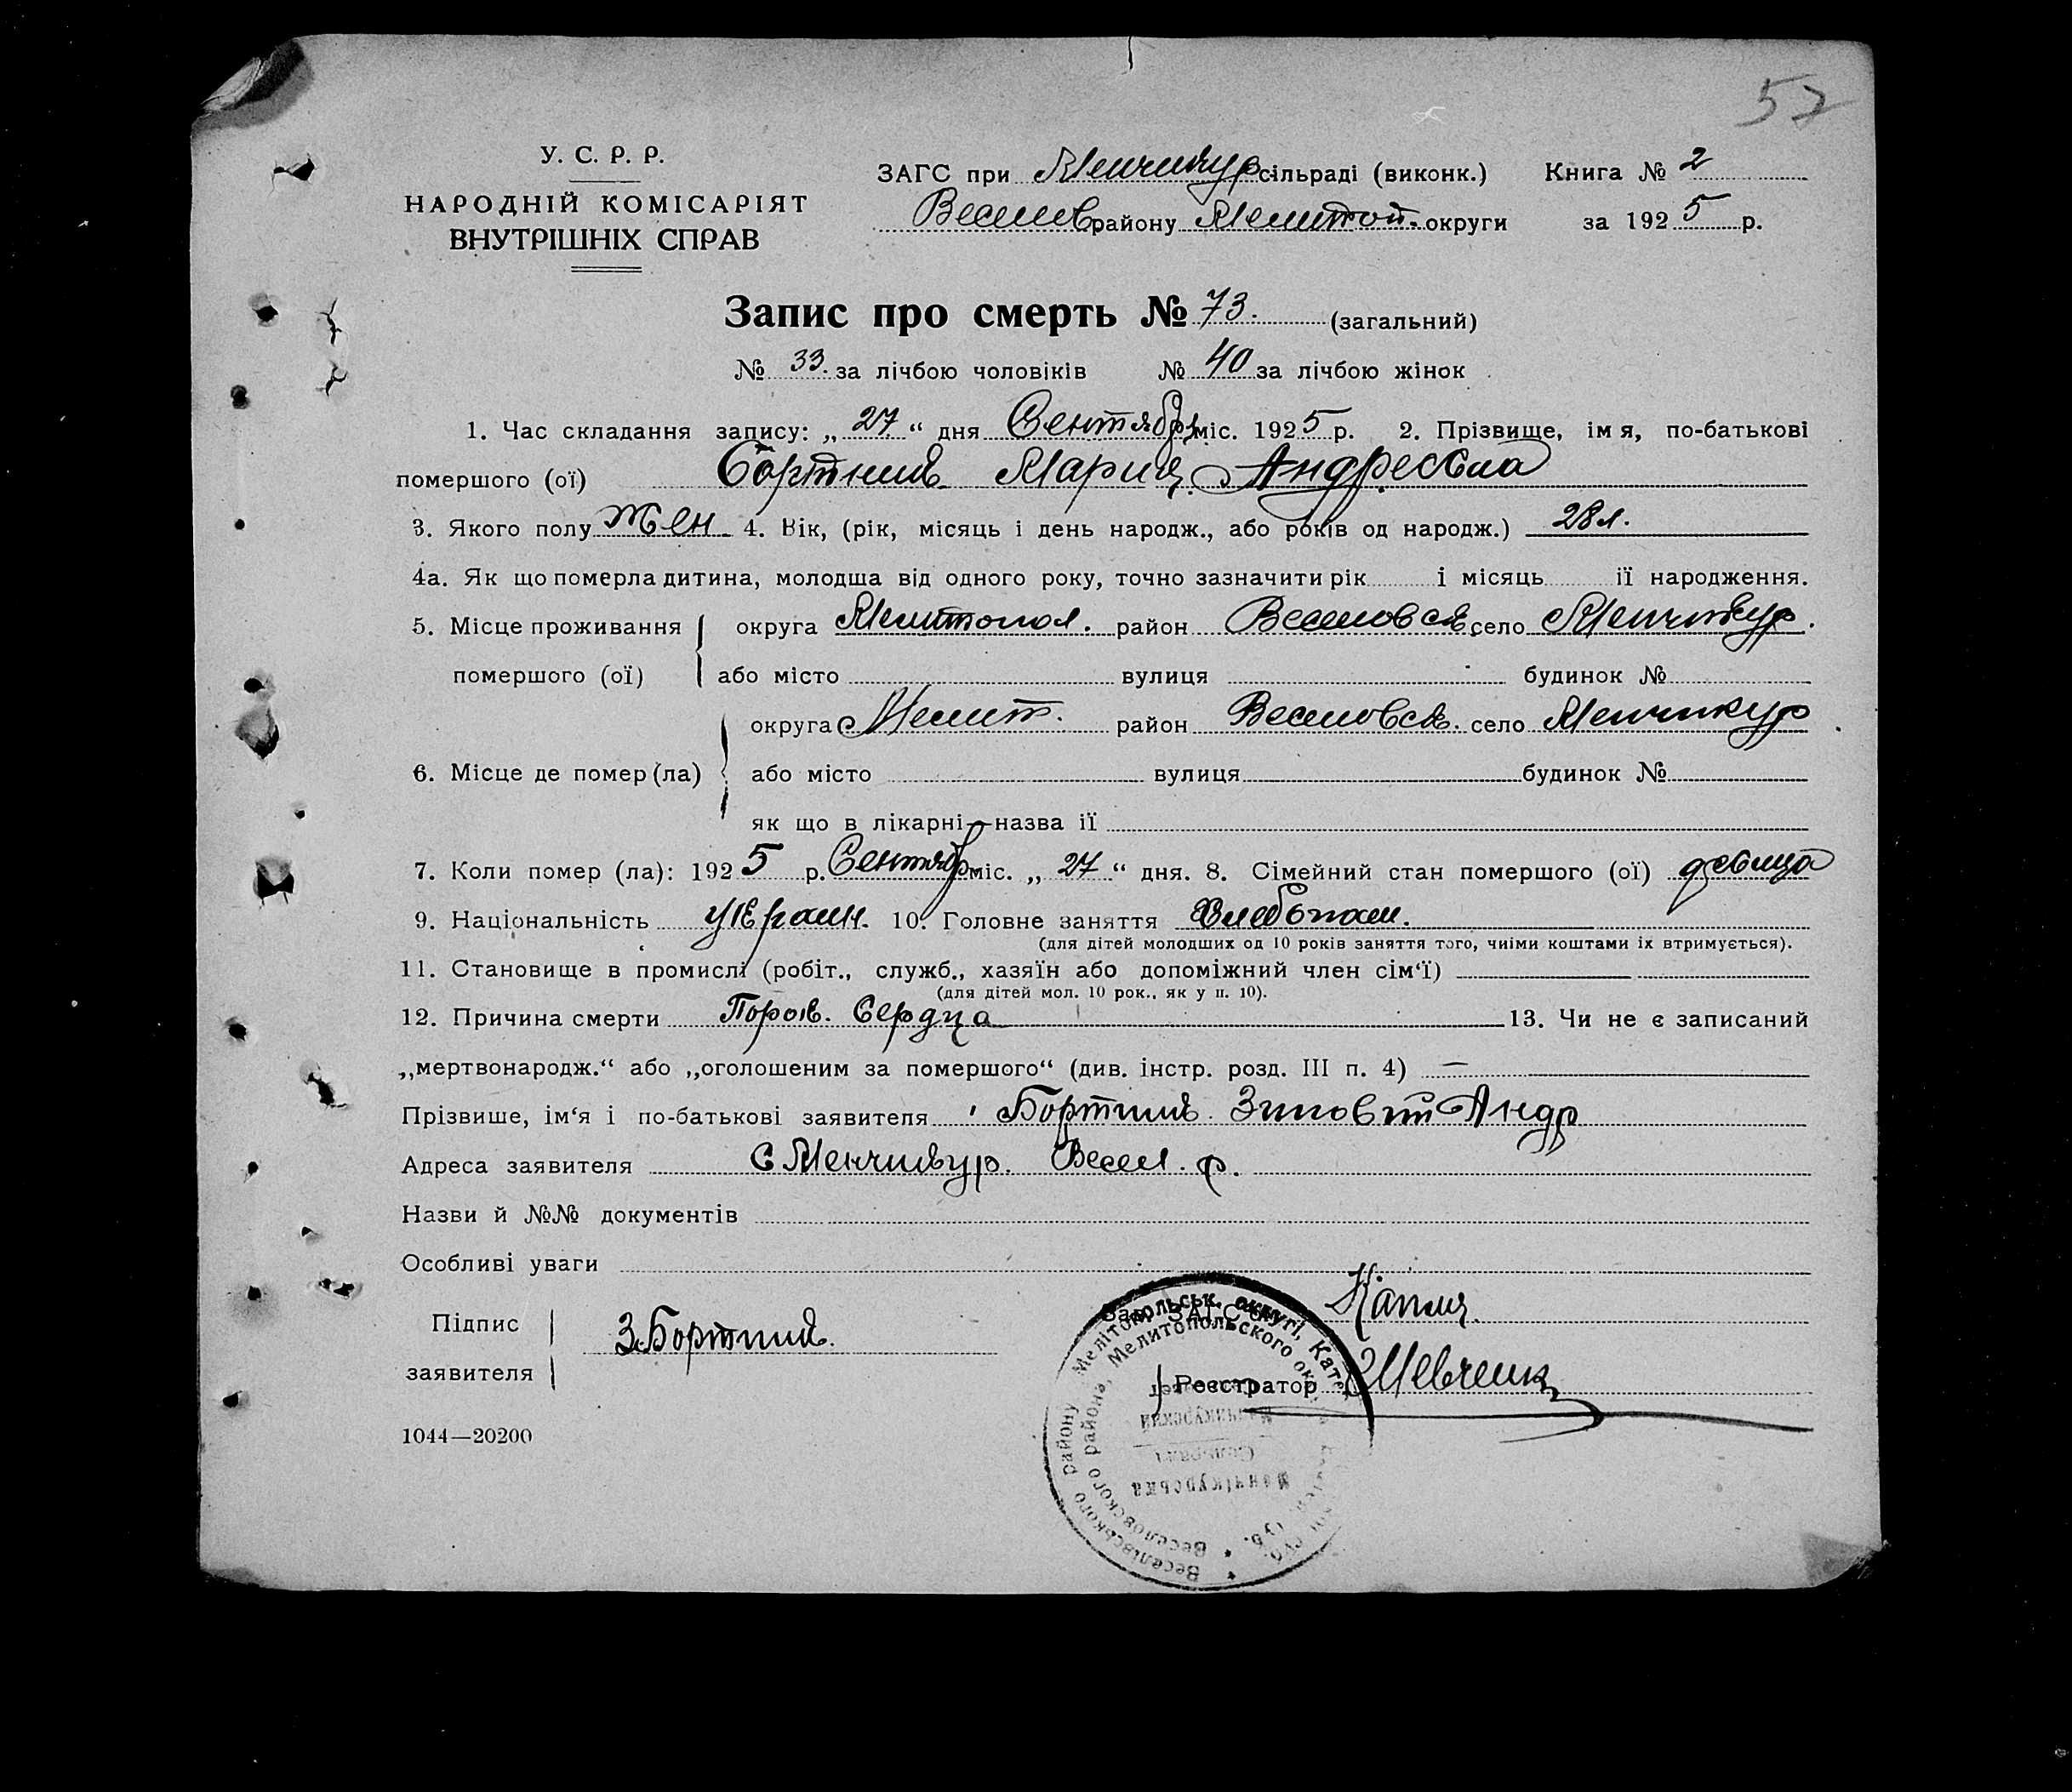 57
У. С. Р. Р.
НАРОДНІЙ КОМІСАРІЯТ
ВНУТРІШНІХ СПРАВ
ЗАГС при Менчикур сільраді (виконк.) Книга № 2
Веселов району Мелитоп. округи за 1925 р.
Запис про смерть № 73. (загальний)
№ 33. за лічбою чоловіків № 40 за лічбою жінок
1. Час складання запису: „ 27 “ дня Сентябр міс. 1925 р. 2. Прізвище, імя, по-батькові
помершого (ої) Бортник Мария Андреевна
3. Якого полу жен 4. Вік, (рік, місяць і день народж., або років од народж.) 28 л.
4а. Як що померла дитина, молодша від одного року, точно зазначити рік і місяць її народження.
5. Місце проживання округа Мелитопол. район Веселовск село Менчикур.
помершого (ої) або місто вулиця будинок №
округа Мелит. район Веселовск. село Менчикур
6. Місце де помер (ла) або місто вулиця будинок №
як що в лікарні—назва її
7. Коли помер (ла): 1925 р. Сентябр міс. „ 27 “ дня. 8. Сімейний стан помершого (ої) девица
9. Національність украин. 10. Головне заняття Хлебопаш.
(для дітей молодших од 10 років заняття того, чиїми коштами їх втримується).
11. Становище в промислі (робіт., служб., хазяїн або допоміжний член сім‘ї)
(для дітей мол. 10 рок., як у п. 10).
12. Причина смерти Порок. Сердца 13. Чи не є записаний
„мертвонародж.“ або „оголошеним за помершого“ (див. інстр. розд. III п. 4) —
Прізвише, ім‘я і по-батькові заявителя Бортник Зиновий Андр
Адреса заявителя С Менчикур. Весел. р.
Назви й №№ документів
Особливі уваги
Підпис
заявителя З. Бортник.
Зав. ЗАГС‘ом Капля
Реєстратор Шевченк
1044—20200
Веселівського району Мелітопольськ. округи, Кате
Веселовского района, Мелитопольского ок